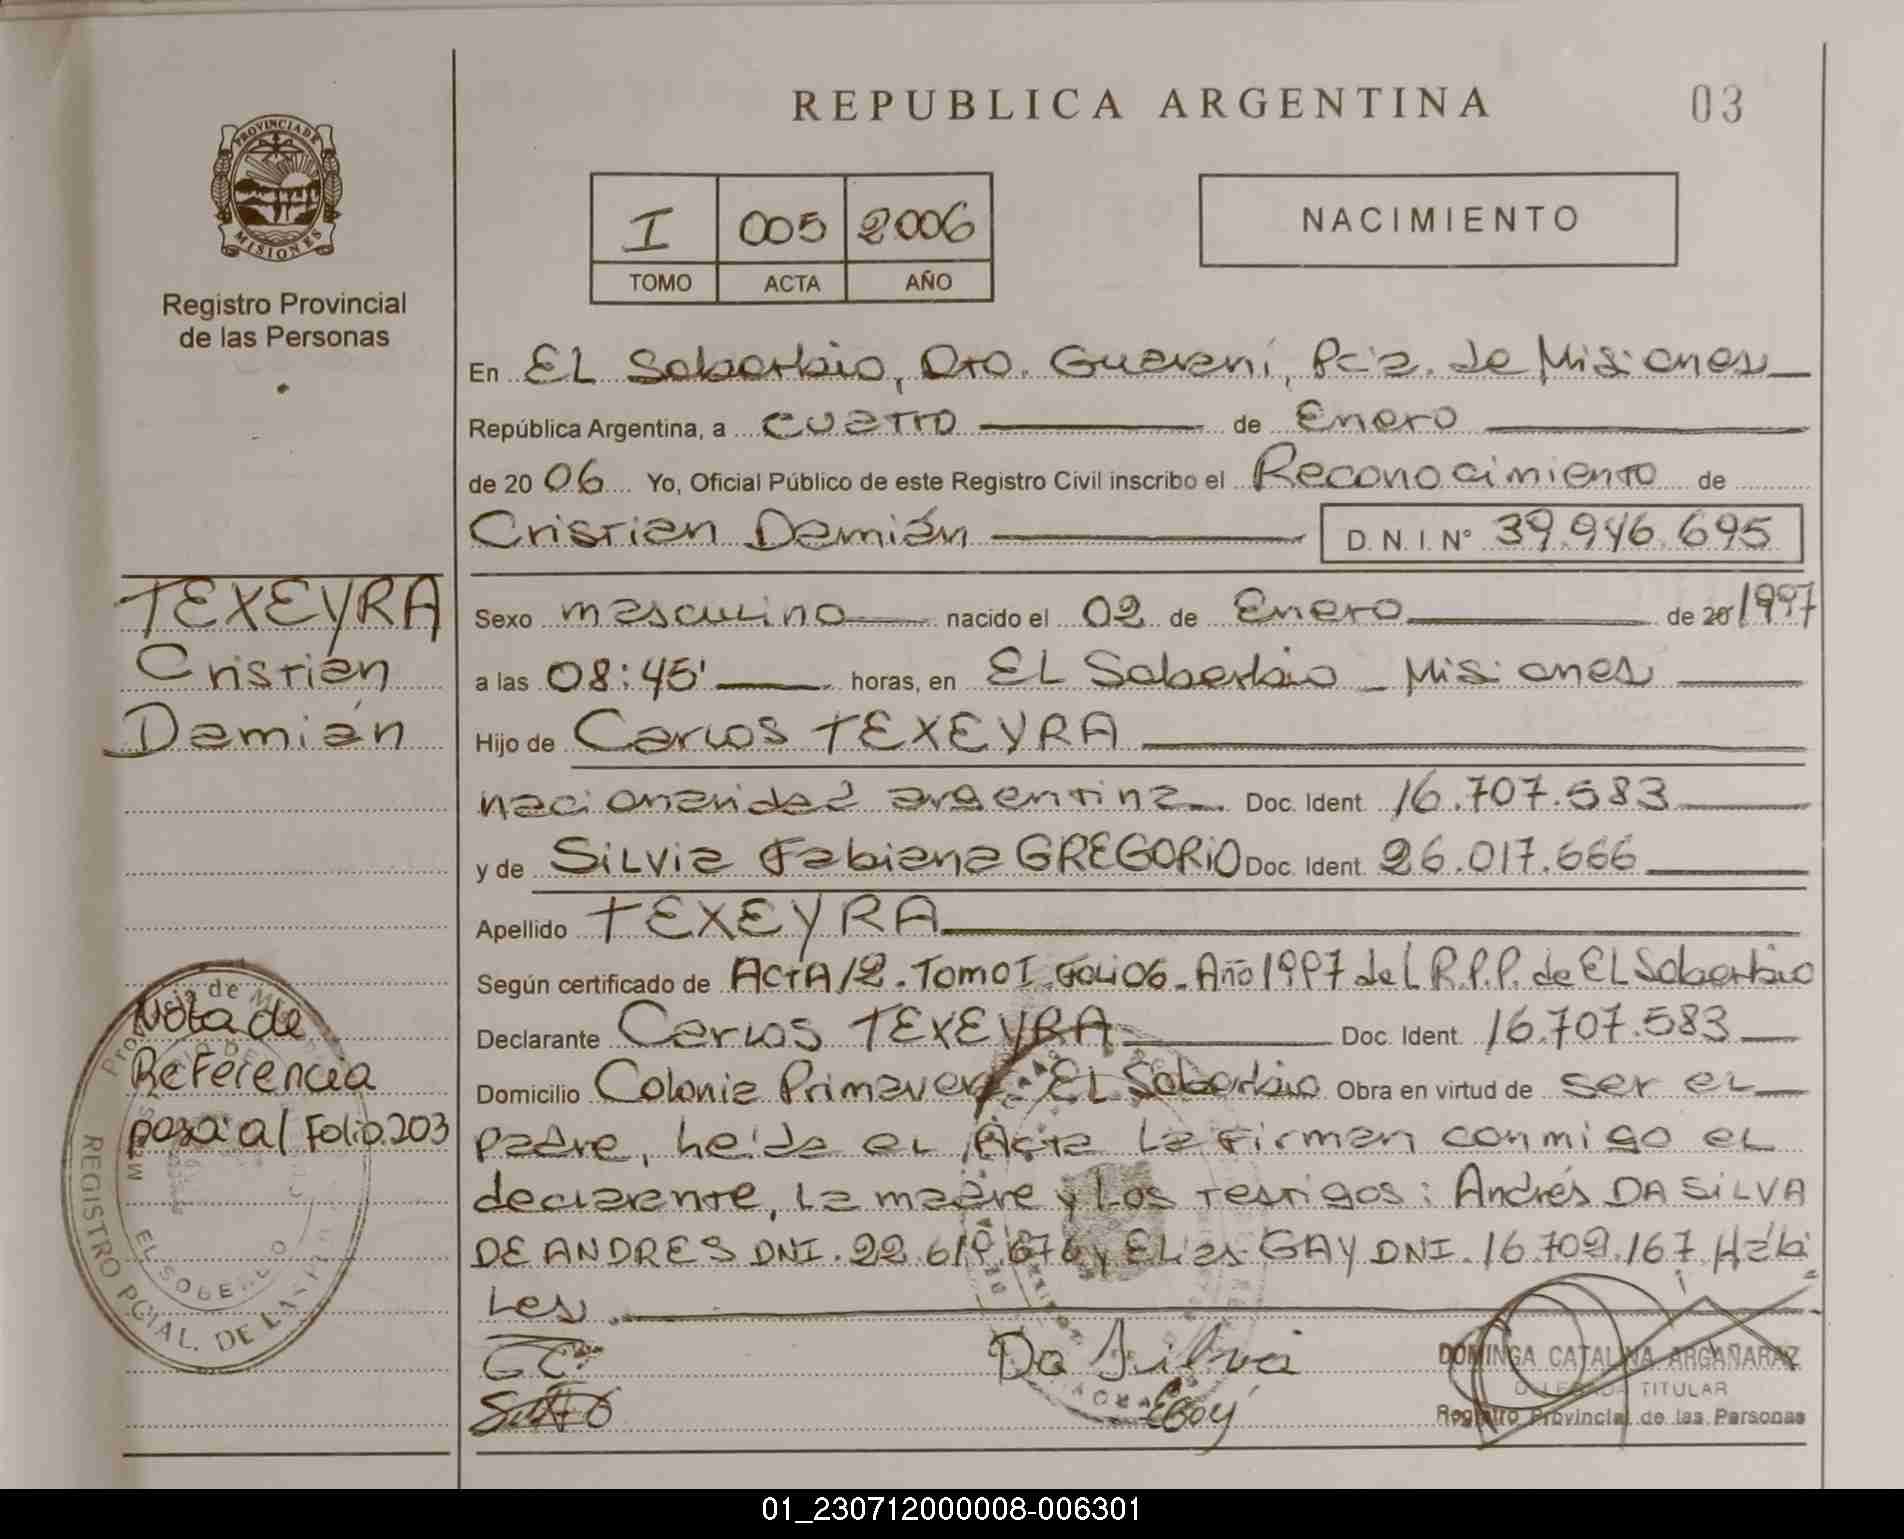 REPUBLICA ARGENTINA
03
PROVINCIA DE
MISIONES
Registro Provincial
de las Personas
I 005 2006
TOMO ACTA AÑO
NACIMIENTO
En El Soberbio, Dto. Guaraní, Pcia. de Misiones
República Argentina, a cuatro de Enero
de 20 06 Yo, Oficial Público de este Registro Civil inscribo el Reconocimiento de
Cristian Damián D.N.I. N° 39.946.695
TEXEYRA
Cristian
Damián
Sexo masculino nacido el 02 de Enero de 20 1997
a las 08:45' horas, en El Soberbio - Misiones
Hijo de Carlos TEXEYRA
nacionalidad argentina Doc. Ident. 16.707.583
y de Silvia Fabiana GREGORIO Doc. Ident. 26.017.666
Apellido TEXEYRA
Según certificado de ACTA 12. Tomo I. Folio 6. Año 1997 del R.P.P. de El Soberbio
Declarante Carlos TEXEYRA Doc. Ident. 16.707.583
Domicilio Colonia Primavera El Soberbio Obra en virtud de ser el
padre, leída el Acta la firman conmigo el
declarante, la madre y los testigos: Andrés DA SILVA
DE ANDRES DNI. y Elias GAY DNI. 16.709.167 Hábi
les.
Nota de
Referencia
pasa al Folio 203
REGISTRO PCIAL. DE LAS
EL SOBERBIO
Da Silva
DOMINGA CATALINA ARGAÑARAZ
DELEGADA TITULAR
Registro Provincial de las Personas
01_230712000008-006301